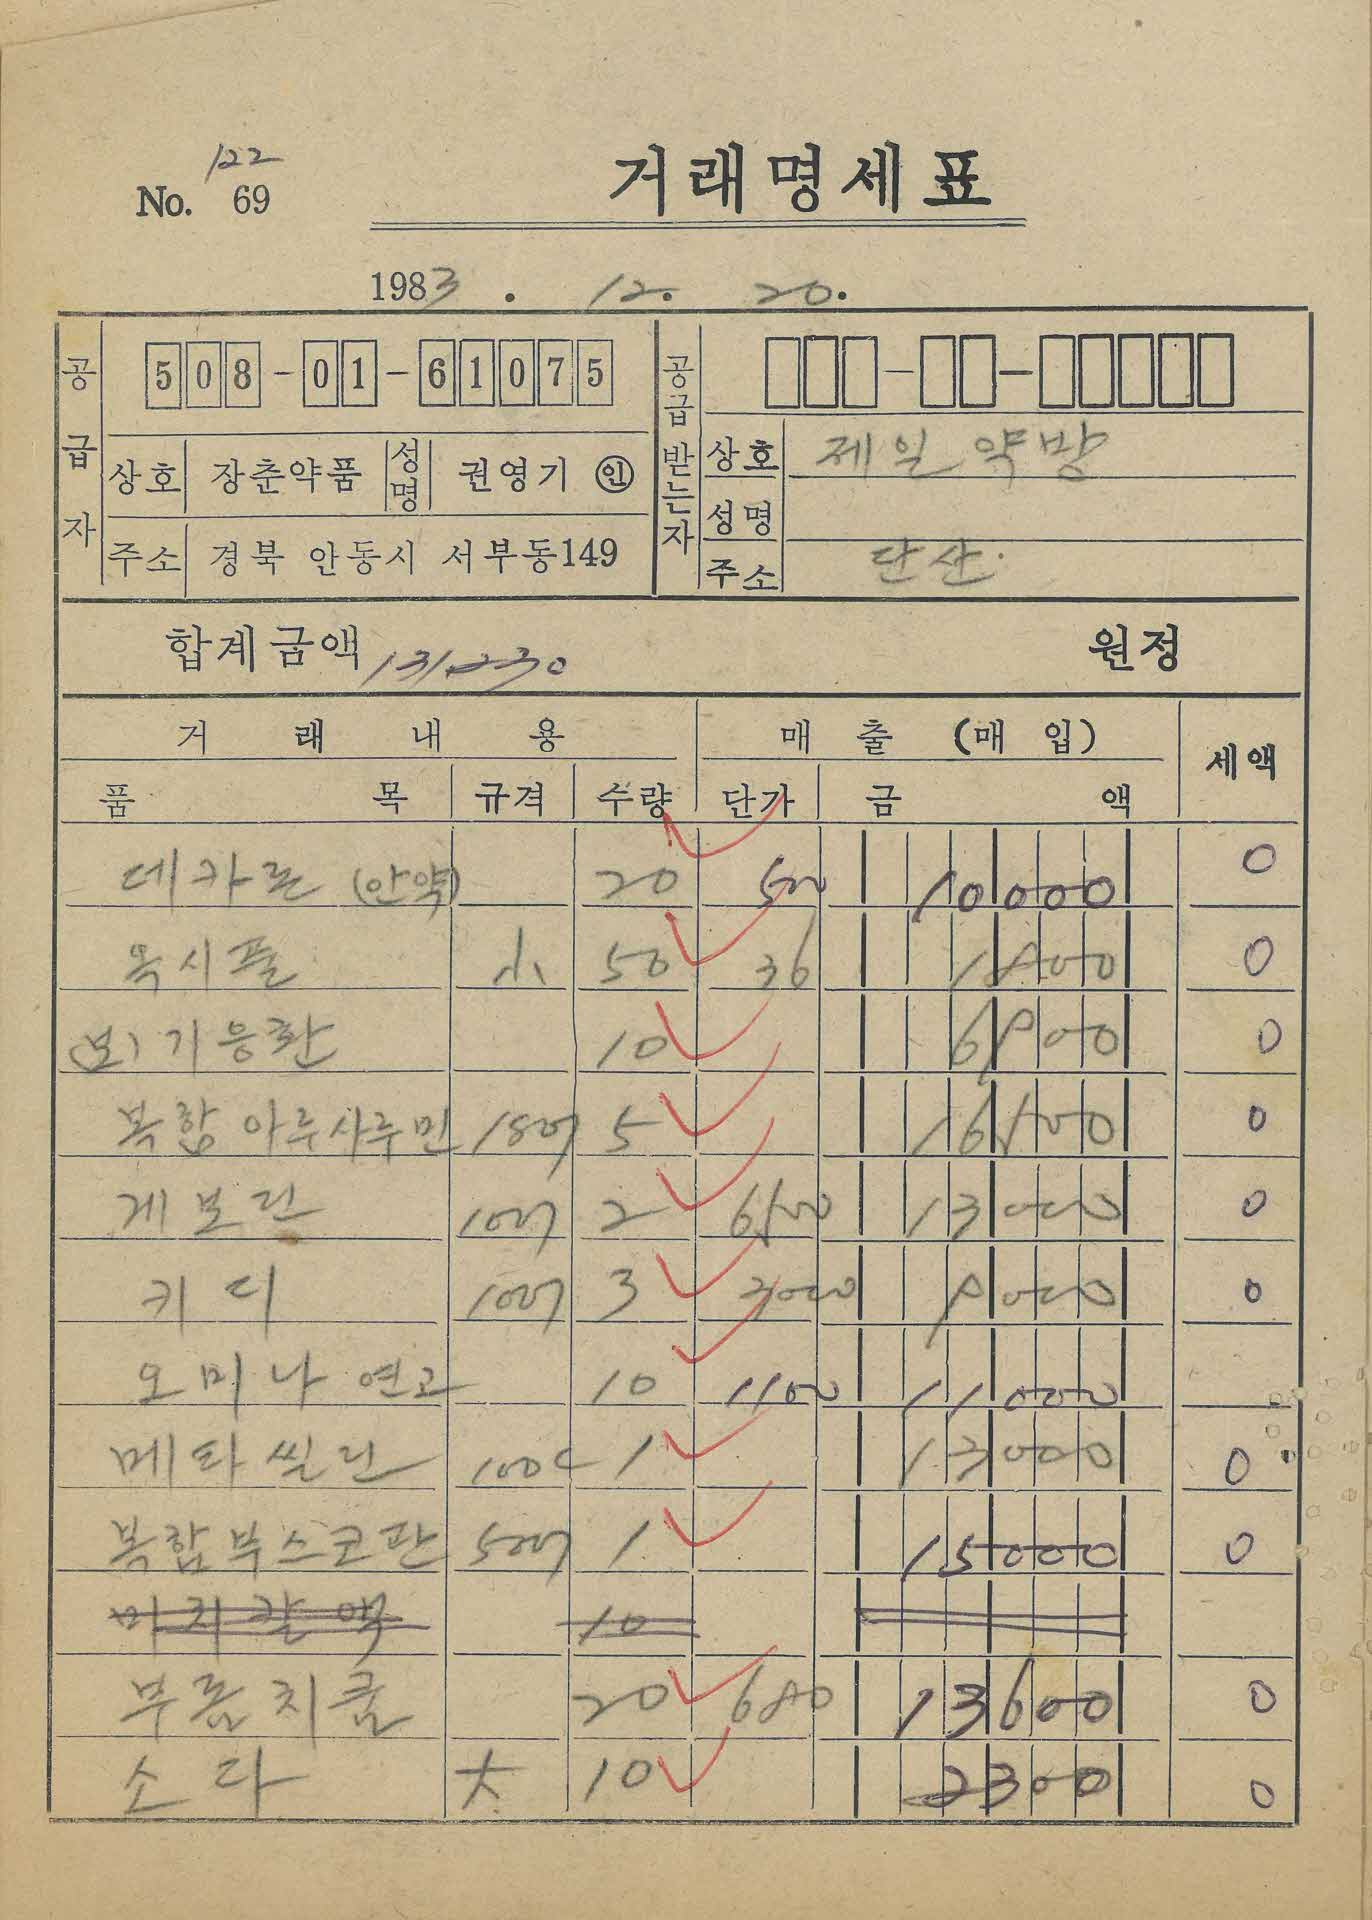 122
No. 69
거래명세표
1983 . 12 . 20 .
공급자
508-01-61075
상호 장춘약품 성명 권영기 인
주소 경북 안동시 서부동149
공급받는자
상호 제일약방
성명
주소 단산.
합계금액 131230 원정
거래내용 매출 (매입) 세액
품목 규격 수량 단가 금액
데카론 (안약) 20 500 10000 0
옥시풀 小 50 36 1800 0
(보) 기응환 10 6800 0
복합 아루사루민 180T 5 16500 0
게보린 100T 2 6500 13000 0
키디 100T 3 3000 9000 0
오미나 연고 10 1100 11000
메타씰린 100C 1 13000 0
복합부스코판 500T 1 15000 0
10
부롬치쿰 20 680 13600 0
소다 大 10 2300 0